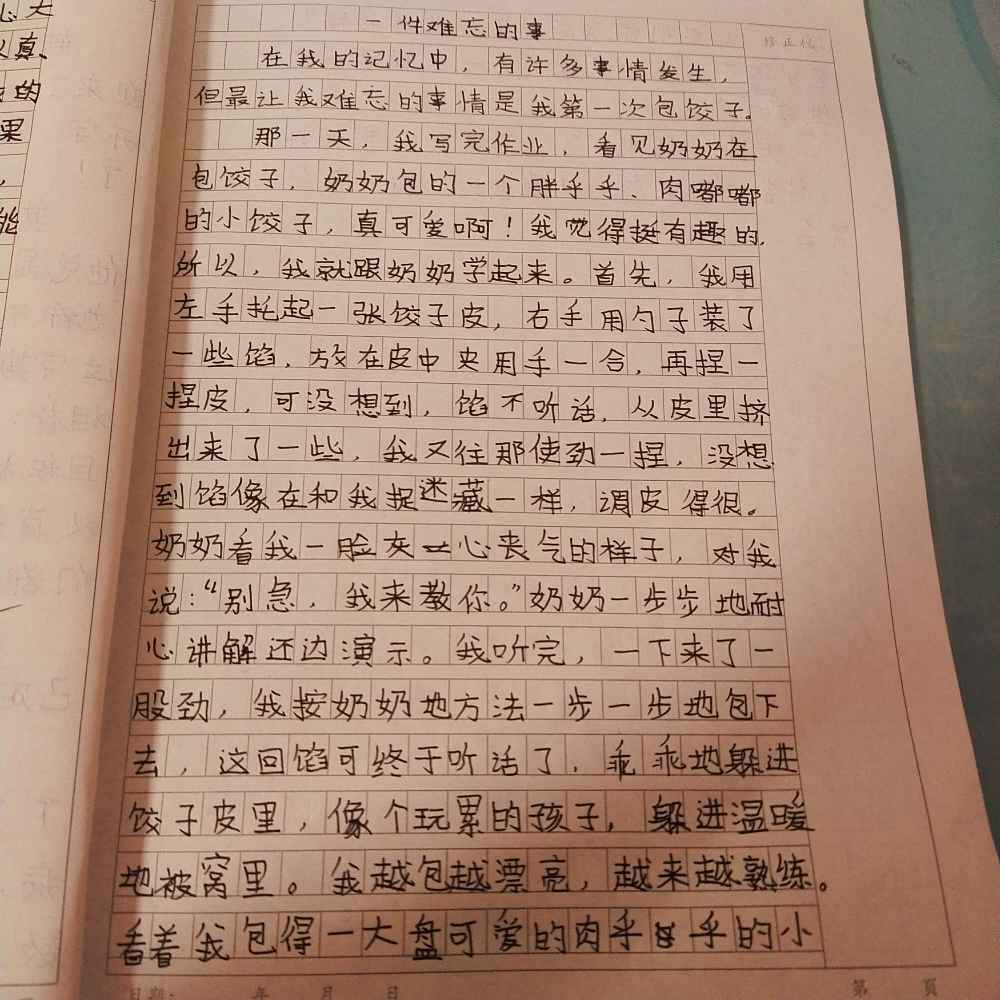 一件难忘的事
在我的记忆中，有许多事情发生，
但最让我难忘的事情是我第一次包饺子。
那一天，我写完作业，看见奶奶在
包饺子，奶奶包的一个胖乎乎、肉嘟嘟
的小饺子，真可爱啊！我觉得挺有趣的，
所以，我就跟奶奶学起来。首先，我用
左手托起一张饺子皮，右手用勺子装了
一些馅，放在皮中央用手一合，再捏一
捏皮，可没想到，馅不听话，从皮里挤
出来了一些，我又往那使劲一捏，没想
到馅像在和我捉迷藏一样，调皮得很。
奶奶看我一脸灰心丧气的样子，对我
说：“别急，我来教你。”奶奶一步步地耐
心讲解还边演示。我听完，一下来了一
股劲，我按奶奶地方法一步一步地包下
去，这回馅可终于听话了，乖乖地躲进
饺子皮里，像个玩累的孩子，躲进温暖
地被窝里。我越包越漂亮，越来越熟练。
看着我包得一大盘可爱的肉乎乎的小
日期： 年 月 日 第 頁